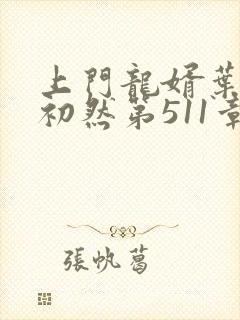 上門龍婿葉
初然第511章
張帆葛